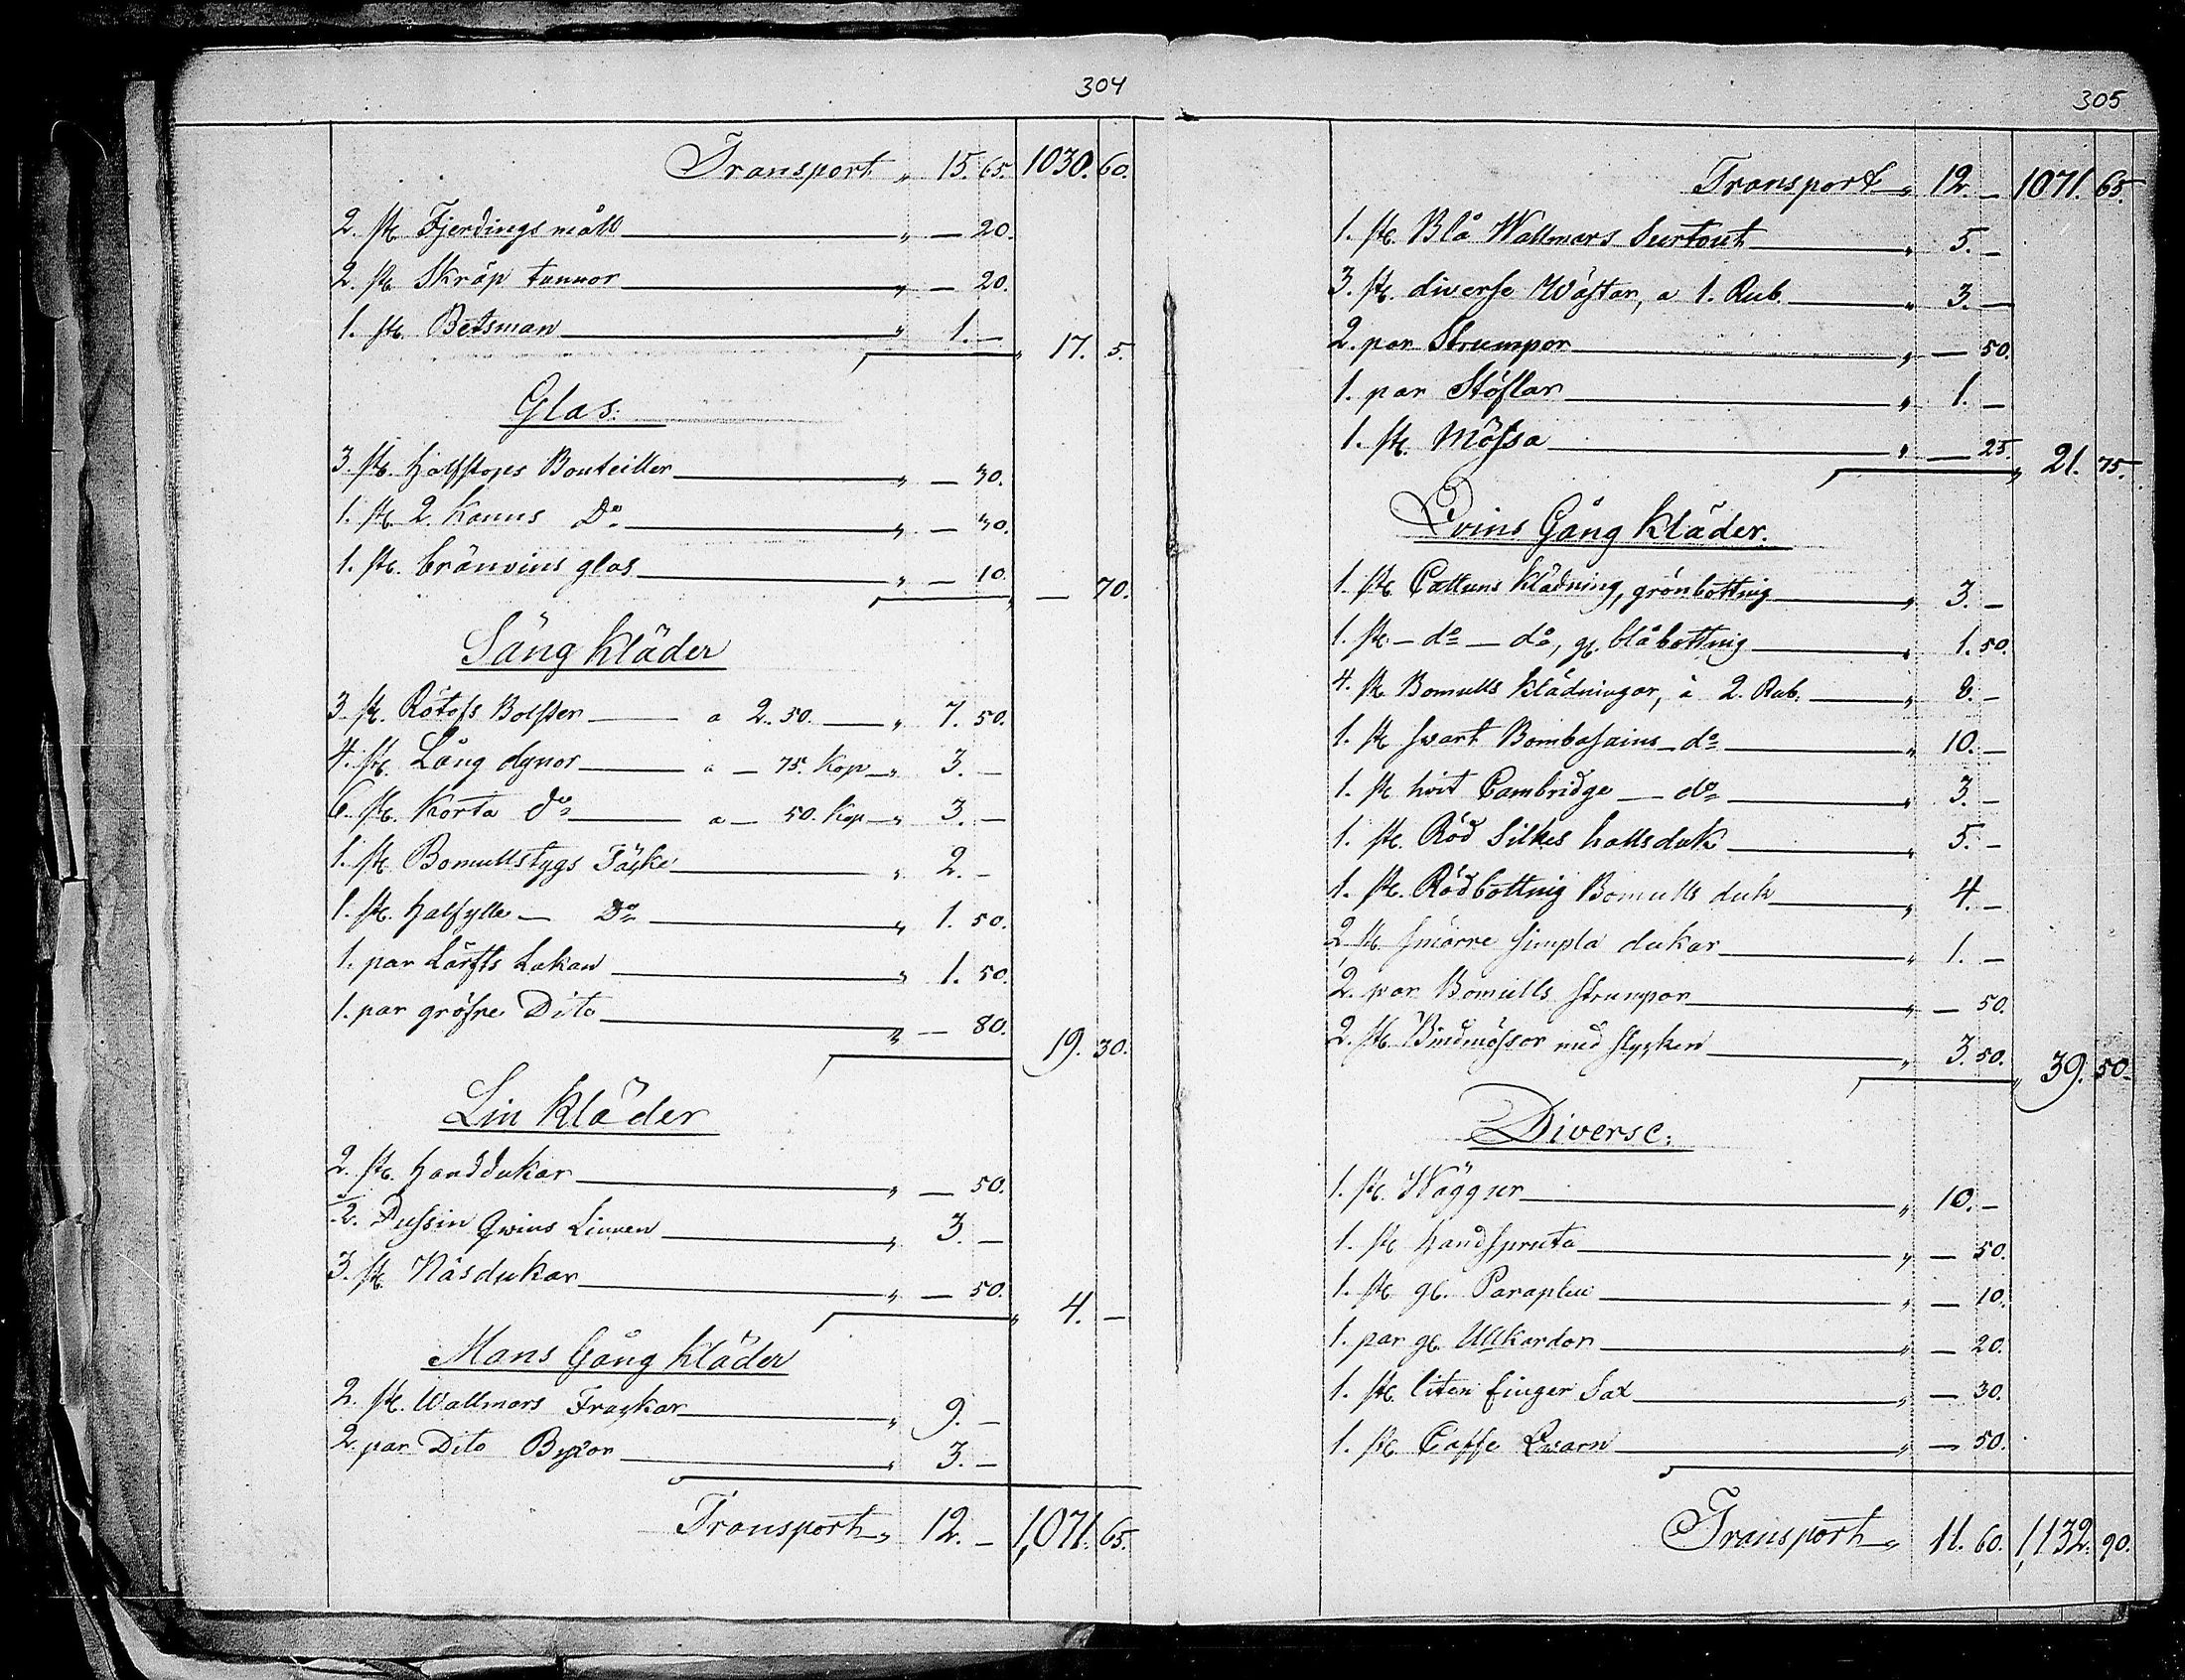 304
Transport „ 15. 65. 1030. 60.
2. st. Fjerdings mått „ — 20.
2. st. Skräp tunnor „ — 20.
1. st. Betsman „ 1. —
„ 17. 5.
Glas:
3. st. halfstops Bouteiller „ — 30.
1. st. 2. Kanns Do „ — 30.
1. st. bränvins glas „ — 10.
„ — 70.
Säng kläder
3. st. Bolster a 2. 50. „ 7. 50.
4. st. Lång dynor a — 75. Kop „ 3. —
6. st. Korta do a — 50. Kop „ 3. —
1. st. Bomullstygs Täcke „ 2. —
1. st. halfylle — Do „ 1. 50.
1. par Lärfts Lakan „ 1. 50.
1. par gröfre Dito „ — 80.
19. 30.
Lin kläder
2. st. handdukar „ — 50.
½. Dussin Qwins Linnen „ 3. —
3. st. Näsdukar „ — 50.
„ 4. —
Mans Gång kläder
2. st. Wallmars Frackar „ 9. —
2. par Dito Byxor „ 3. —
Transport „ 12. — 1,071. 65.
305
Transport „ 12. — 1071. 65.
1. st. Blå Wallmars Surtout „ 5. —
3. st. diverse Wästar, a 1. Rub. „ 3. —
2. par Strumpor „ — 50.
1. par Stöflar „ 1. —
1. st. Mössa „ — 25.
„ 21. 75.
Qvins Gång kläder.
1. st. Cattuns Klädning, grönbottnig „ 3. —
1. st. — do — do, gl. blåbottnig „ 1. 50.
4. st. Bomulls Klädningar, à 2. Rub. „ 8. —
1. st. swart Bombasains — do „ 10. —
1. st. hvit Cambridge — do „ 3. —
1. st. Röd Silkes halsduk „ 5. —
1. st. Rödbottnig Bomulls duk „ 4. —
2. st. smärre simpla dukar „ 1. —
2. par Bomulls strumpor „ — 50.
2. st. Bindmössor med stycken „ 3. 50.
„ 39. 50.
Diverse:
1. st. Wäggur „ 10. —
1. st. handspruta „ — 50.
1. st. gl. Paraplue „ — 10.
1. par gl. Ullkardor „ — 20.
1. st. liten finger Sax „ — 30.
1. st. Caffe Qwarn „ — 50.
Transport „ 11. 60. 1,132. 90.